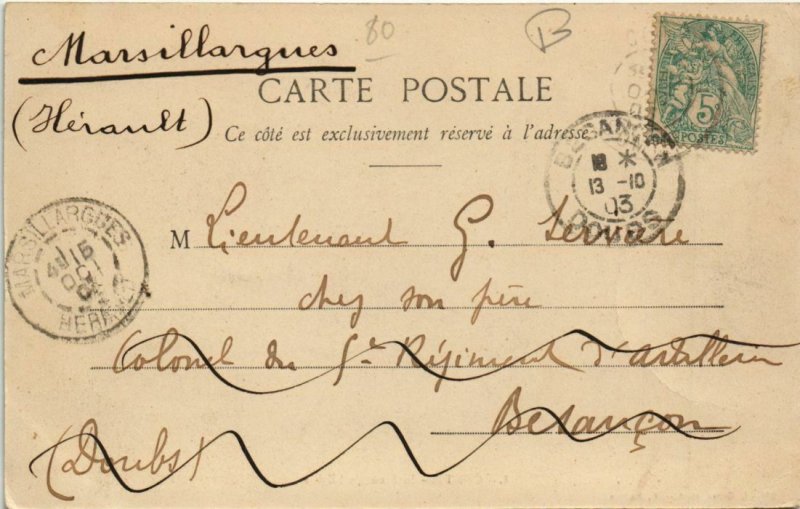 Marsillargues
(Hérault)
80
B
CARTE POSTALE
Ce côté est exclusivement réservé à l'adresse
5
POSTES
BESANÇON
18 *
13 -10
03
DOUBS
MARSILLARGUES
15
OCT
HERAULT
M Lieutenant G. Servière
chez son père
Colonel du 5e Régiment d'artillerie
Besançon
(Doubs)